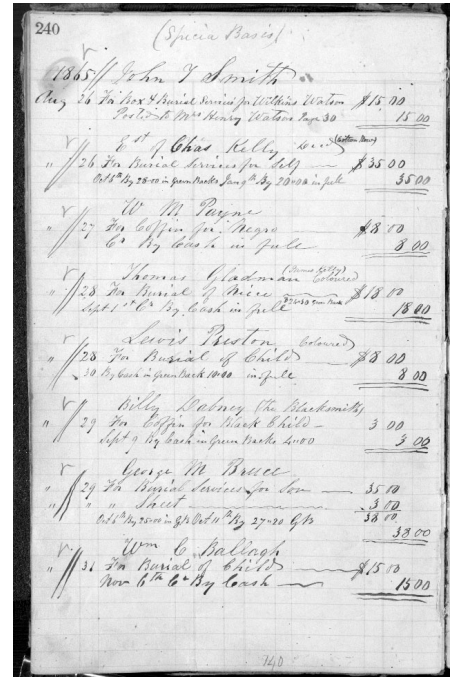 240
(Specia Basis)
1865 // John T Smith
Aug 26 For Box & Burial Services for Wilkins Watson $15 00
Posted to Mrs Henry Watson Page 30 15 00
Est of Chas Kelly
" // 26 For Burial Services for Self — $35 00
Oct 6th By 28-00 in Green Backs Jan 9th By 20-00 in full 35 00
W. M. Payne
" // 27 For Coffin for Negro — $8 00
Cr By Cash in full 8 00
Thomas Gladman Coloured
" // 28 For Burial of Niece — $18 00
Sept 1st Cr By Cash in full 18 00
Lewis Preston Coloured)
" // 28 For Burial of Child — $8 00
" 30 By Cash in Green Back 10-00 in full 8 00
Billy Dabney (the Blacksmith)
" // 29 For Coffin for Black Child — 3 00
Sept 9 By Cash in Green Backs 4-00 3 00
George M Bruce
" // 29 For Burial Services for Son — 35 00
" // " " Sheet — 3 00
Oct 6th By 25-00 in G/B Oct 11th By 27-20 G/B 38 00
38 00
Wm C. Ballagh
" // 31 For Burial of Child — $15 00
Nov 6th Cr By Cash — 15 00
140